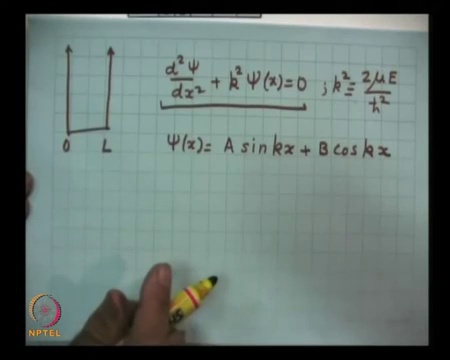 d²Ψ/dx² + k²Ψ(x)=0 ; k² ≡ 2μE/ħ²
Ψ(x)= A sinkx + B coskx
0 L
NPTEL